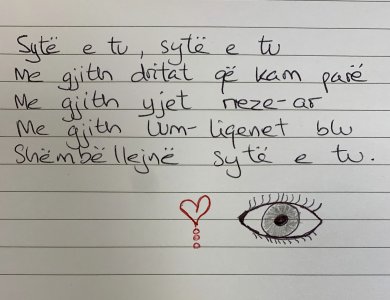 Sytë e tu, sytë e tu
Me gjith dritat që kam parë
Me gjith yjet rreze-ar
Me gjith lum-liqenet blu
Shëmbëllejnë sytë e tu.